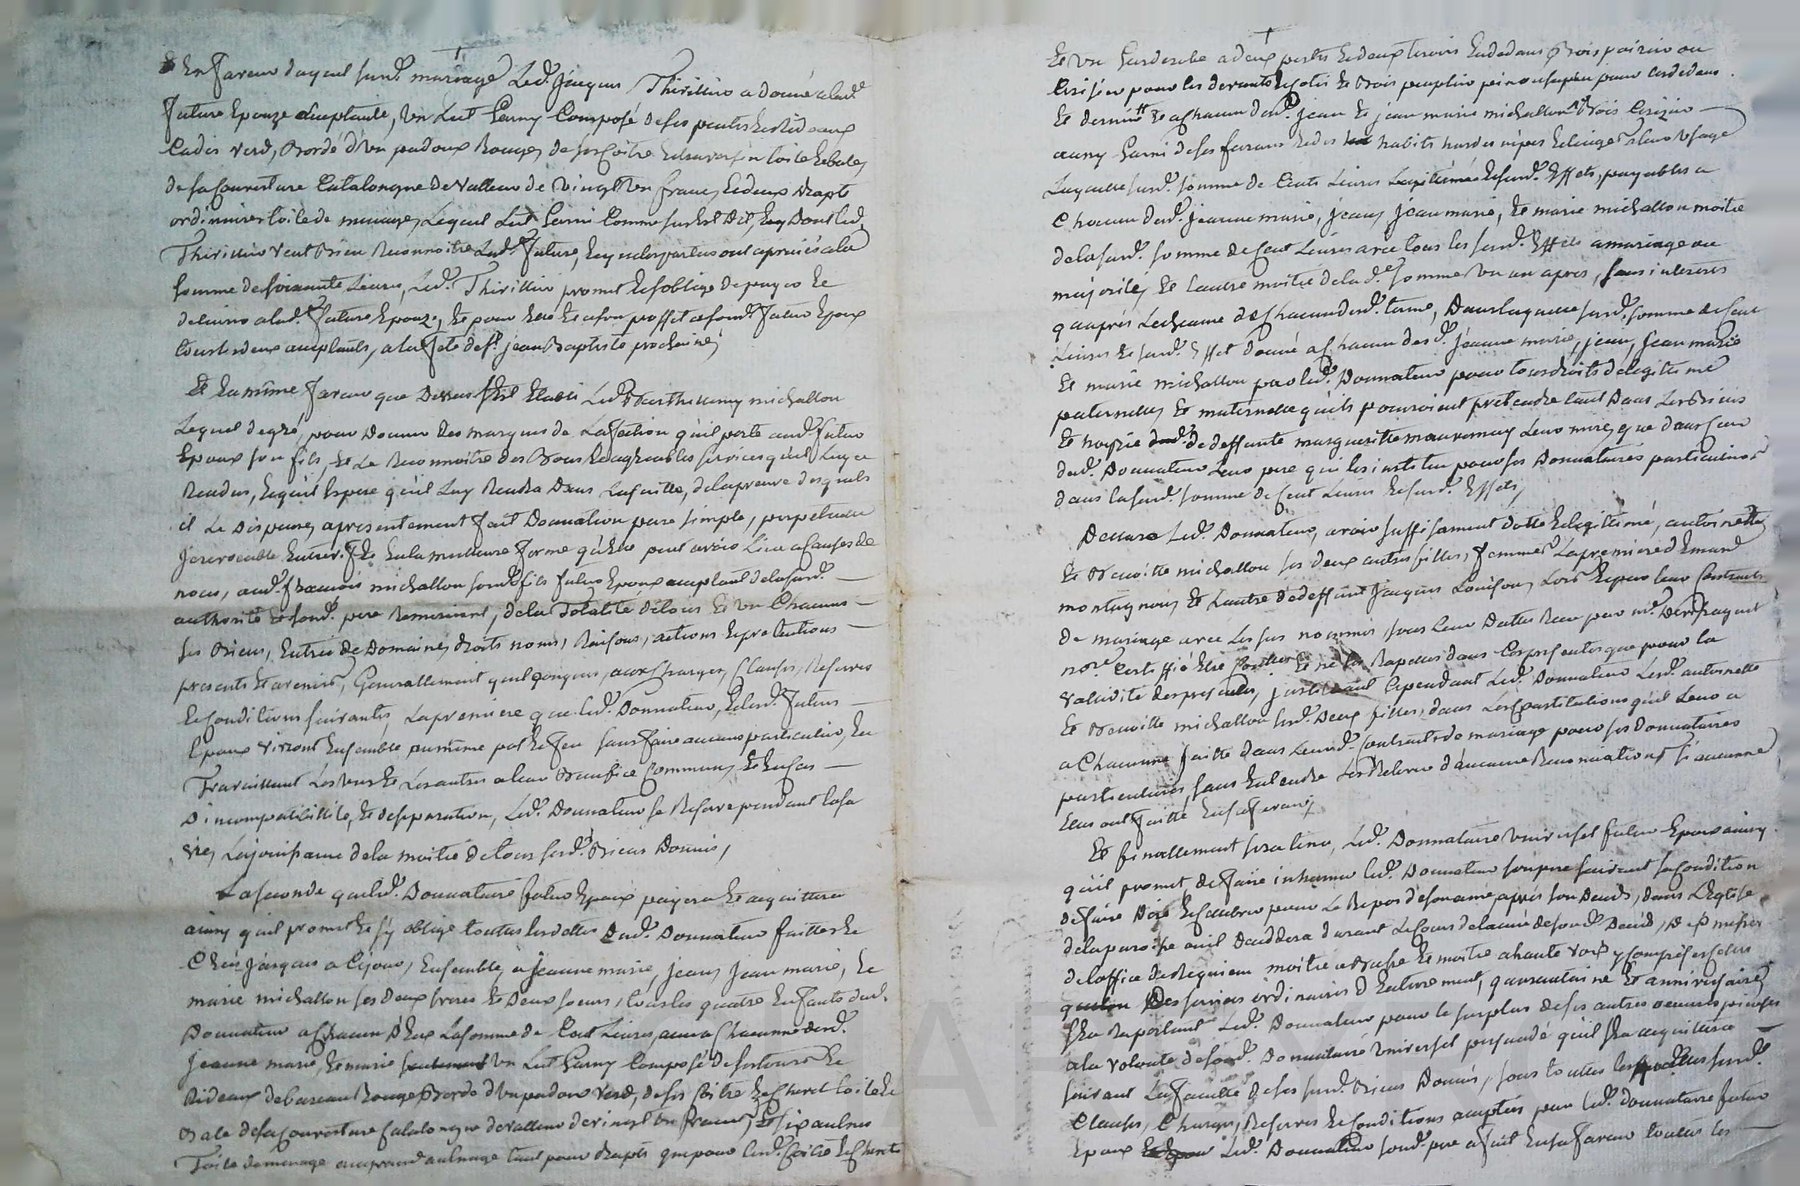 En faveur duquel surd. mariage Led. Jacques Thivillier a donné a lad.
future Epouze acceptante, un Lict Garny Composé de ses pentes Et rideaux
Cadis verd, Bordé d'un padoux Rouge, de sa Coitre Et traversin toile Et bale,
de sa Couverture Catalongne de valleur de vingt un francs, Et deux drapts
ordinaires toile de menage, Lequel Lict Garni Comme sus Est Dit, Et Dont led.
Thivillier veut Bien Reconnoitre Lad. future, Les parties ont apprécié a la
somme de soixante Livres, Led. Thivillier promet Et s'oblige de payer Et
delivrer a lad. future Epouze, Et pour Elle Et a son proffit a sond. futur Epoux
tous deux acceptants, a la fête de St. jean Baptiste prochaine,
Et En même faveur que Dessus s'Est Etabli Led. Barthelemy michallon
Lequel de gré, pour Donner Des marques de L'affection qu'il porte aud. futur
Epoux son fils, Et Le Reconnoitre des Bons Et agreables services qu'il Luy a
Rendus, Et qu'il Espere qu'il Luy Rendra Dans La suitte, de la preuve desquels
il Le Dispense, a presentement fait Donnation pure simple, perpetuelle
jrrevocable Entre vifs En la meilleure forme qu'Elle peut avoir Lieu a Causes de
noces, aud. françois michallon sond. fils futur Epoux acceptant de la surd.
authorité de sond. pere Remerciant, de la Totalité de tous Et un Chacuns
ses Biens, Entrée de Domaine, droits noms, Raisons, actions Et pretentions
presents Et avenirs, Generallement quelqonques, aux Charges, Clauses, Reserves
Et Conditions suivantes, La premiere que led. Donnateur, Et lesd. futurs
Epoux vivront Ensemble au même pot Et feu sans faire aucun particulier, En
Travaillant Les uns Et Les autres a leur Benefice Commun, Et En Cas
D'incompatibilité, Et de separation, Led. Donnateur se Reserve pendant la sa
vie, La joüissance de la moitié de tous sesd. Biens Donnés,
La seconde que led. Donnataire futur Epoux payera Et acquittera
ainsy qu'il promet Et s'y oblige toutes les dettes dud. Donnateur faittes Et
Créés jusques a Cejour, Ensemble, a jeanne marie, jean, jean marie, Et
marie michallon ses deux freres Et Deux soeurs, tous les quatre Enfants dud.
Donnateur a Chacun d'Eux La somme de Cent Livres, aussi a Chacune desd.
jeanne marie, Et marie un Lict Garny Composé de ses tours Et
Rideaux de bureau Rouge Bordé d'un padoux verd, de ses Coitre Et Chevet toile Et
Bale de sa Couverture Catalongne de valleur de vingt un francs, Et six aulnes
Toile de menage aulnage tant pour drapts que pour lesd. Coitre Et Chevet
Et un Garderobe a deux portes Et deux tiroirs En dedans Bois poirier ou
Cerisier pour les devants Et Bois peuplier pin ou sapin pour Le dedans.
Et a Chacun desd. jean Et jean marie michallon Bois Cerizier
aussy Garni de ses ferrures Et des habits hardes nipes Et Linges a leur usage
Laquelle surd. somme de Cents Livres Legitime Et surd. Effets, payables a
Chacun desd. jeanne marie, jean, jean marie, Et marie michallon moitié
de la surd. somme de Cent Livres avec tous les surd. Effets a mariage ou
majorité, Et L'autre moitié de lad. somme un an après, sans interets
qu'après L'echeance de Chacun desd. terme, Dans laquelle surd. somme de Cent
Livres Et surd. Effet donné a Chacun des d. jeanne marie, jean, jean marie
Et marie michallon par led. Donnateur pour tous droits de legitime
paternelle, Et maternelle qu'ils pourroient pretendre tant Dans Les Biens
Et hoyrie de deffunte marguerite mauvernay Leur mere, que dans Ceux
dud. Donnateur Leur pere qui les institue pour ses Donnataires particuliers
dans la surd. somme de Cent Livres Et surd. Effets,
Declare Led. Donnateur, avoir suffisament dotté Et legitimé, antoinette
Et Benoitte michallon ses deux autres filles, femmes La premiere d'Emand
montagnon, Et L'autre de deffunt jacques Louison, Lors Et par leur Contracts
de mariage avec Les sus nommés, sous leur Dattes Reçu par me.
nore. Certiffié Estre Et ne les Rapeller dans Ces presentes que pour la
validité des presentes, jnstituant Cependant Led. Donnateur Lesd. antoinette
Et Benoitte michallon surd. Deux filles, dans Les Constitutions qu'il Leur a
a Chacune faitte dans Leursd. Contracts de mariage pour ses Donnataires
particulieres sans Entendre Les Relever d'aucune Renonciations si aucunne
Elles ont faitte En sa faveur,
Et finallement sera tenu, Led. Donnataire universel futur Epoux ainsy
qu'il promet, de faire inhumer led. Donnateur son pere suivant sa Condition
de faire Dire Et Celebrer pour Le Repos de son ame après son Deceds, dans L'Eglise
de la paroisse ou il Deceddera durant Le Cours de l'année de sond. Deceds, messes
de l'office de Requiem moitié a Basse Et moitié a haute voix y Compris Celles
des services ordinaires d'Enterrement, quarantaine Et anniversaire,
s'En Raportant Led. Donnateur pour le surplus de ses autres oeuvres pieuses
a la volonté de sond. Donnataire universel persuadé qu'il s'En acquittera
suivant La faculté de ses surd. Biens Donnés, sous touttes lesquelles surd.
Clauses, Charges, Reserves Et Conditions acceptées par led. donnataire futur
Epoux Led. Donnateur sond. pere a fait En sa faveur toutes les